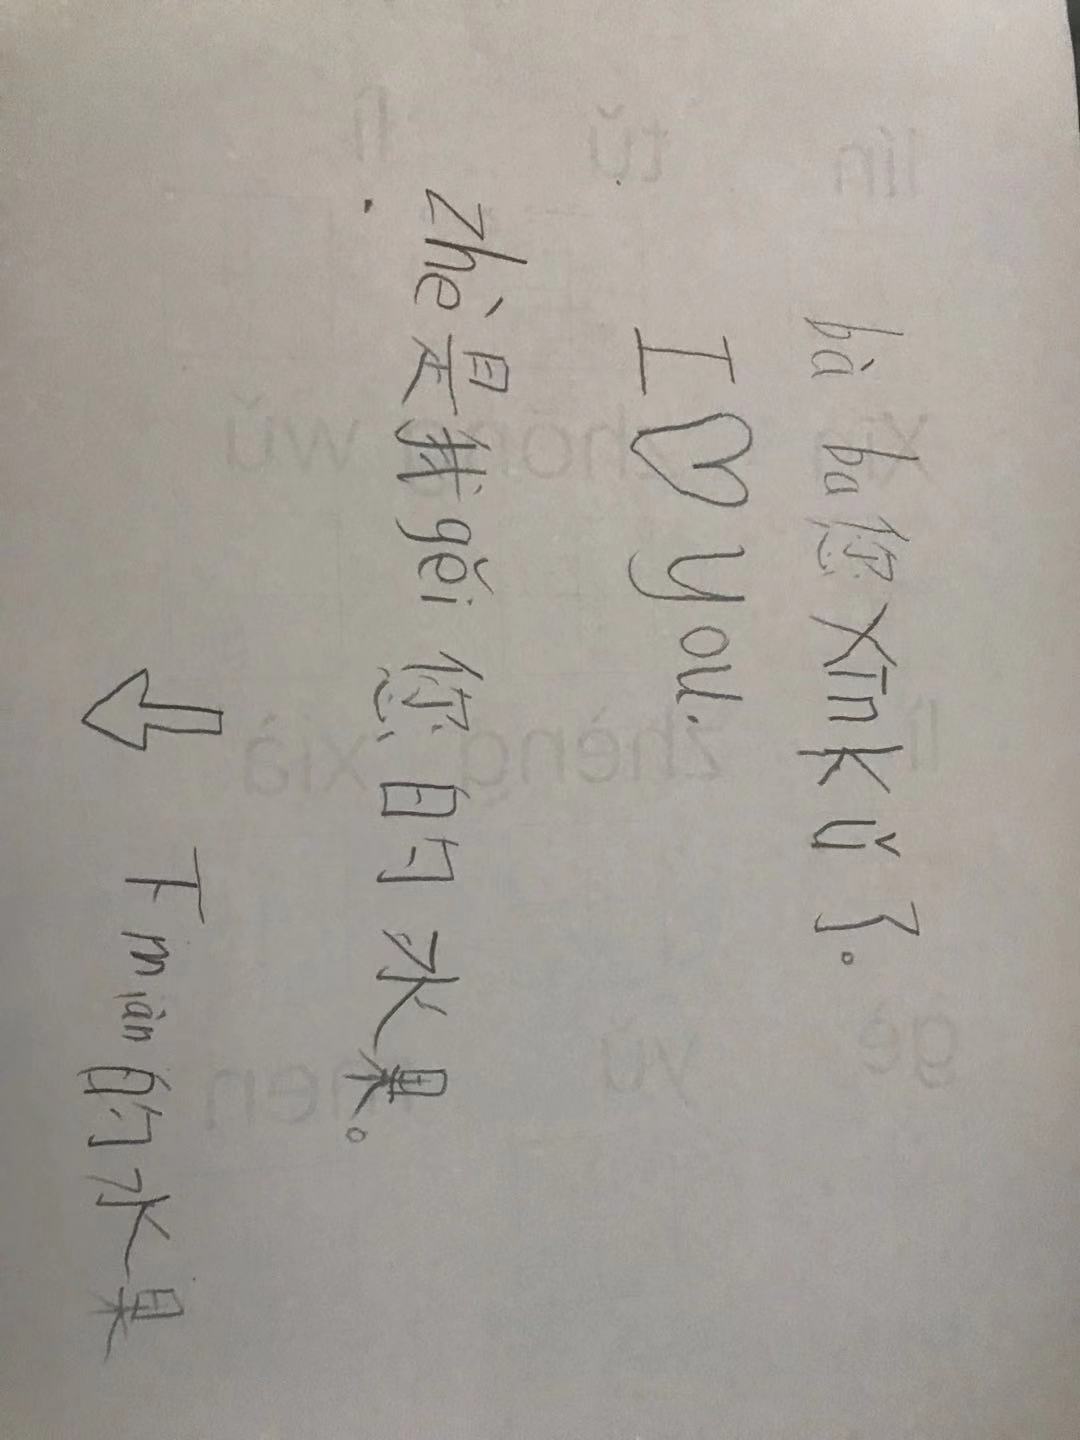 bà ba 您 xīn kǔ 了。
I ♡ you.
zhè 是我 gěi 您的水果。
下 miàn 的水果